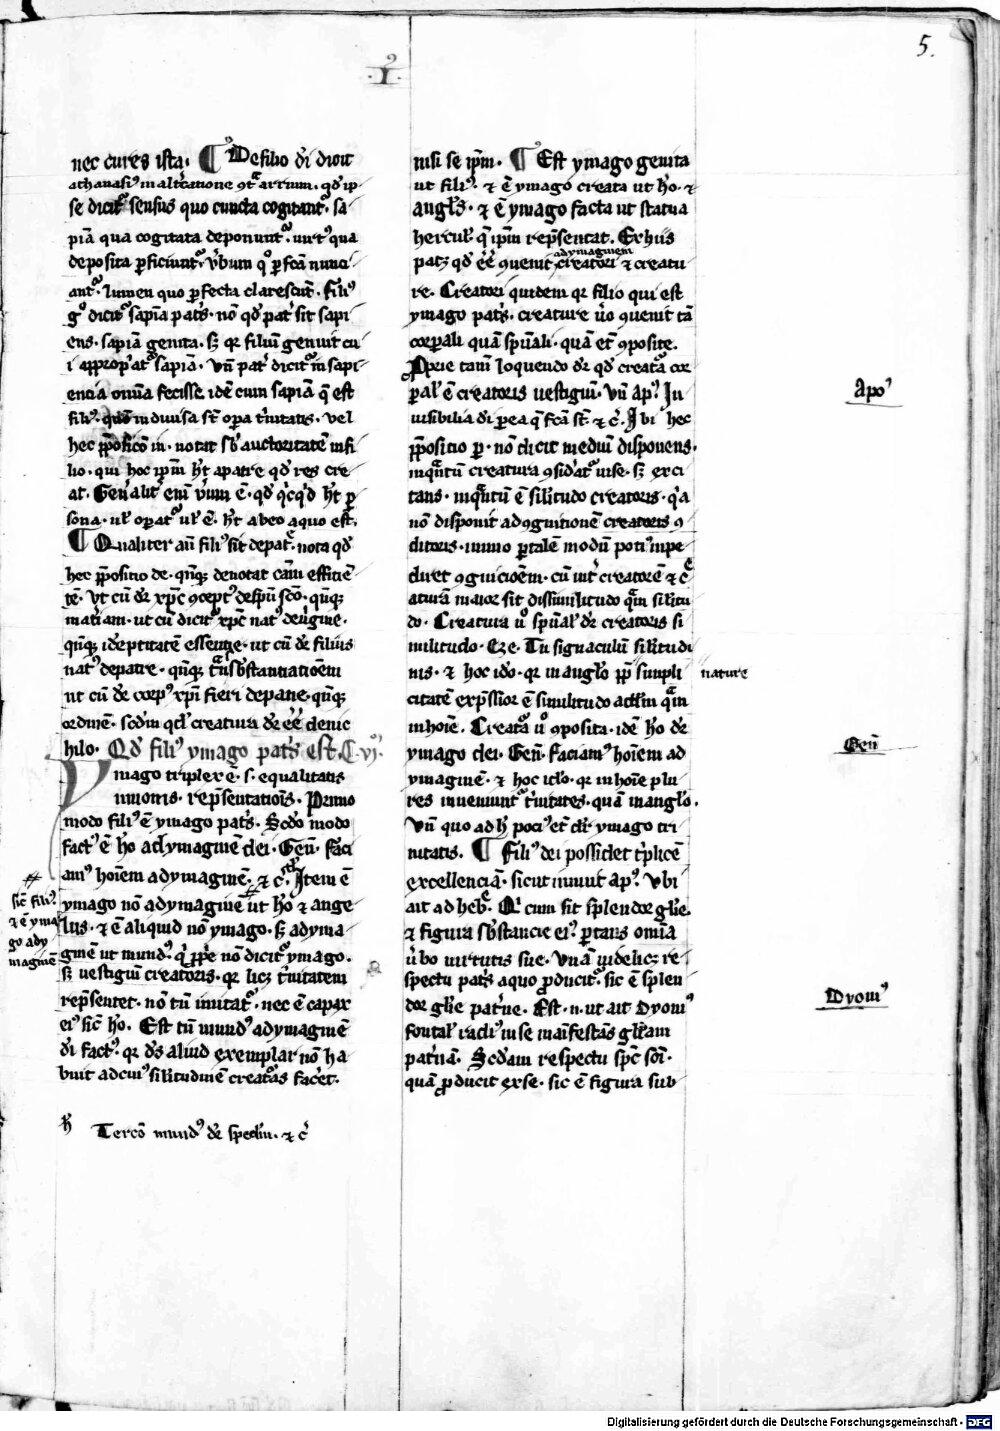 5.
·I·
nec cures ista· ¶ De filio dī dicit
athanasiꝰ in alt̄catione ꝯt̄ arrium· qd̓ ip
se dicit᷑ sensus quo cuncta cogitant᷑· sa
piā qua cogitata deponunt᷑· uirtꝰ qua
deposita ꝑficiunt᷑· v̓bum qͦ ꝑfc̄a nunci
ant᷑· lumen quo ꝑfecta clarescūt· filiꝰ
gͦ dicit᷑ sapīa pat̓s· nō qd̓ pat̓ sit sapi
ens· sapīa genita· sꝫ qr filiū genuit cu
i app̓opͥat᷑ sapīa· Vn̄ pat̓ dicit᷑ in sapi
encia oīnia fecisse idē cum sapīa q̄ est
filiꝰ· indiuisa st̄ oꝑa t̓nitatis· vel
hec p̄positō in· notat sb̓ auctoritatē in fi
lio· qui hoc ip̄m hт̄ a patre qd̓ res cre
at· Gen̓alit̓ eni᷑ v̓um ē· qd̓ qͥcqͥd hт̄ ꝑ
sona· ul̓ oꝑat᷑ ul̓ ē· hт̄ ab eo a quo est·
¶ Qualiter aū filiꝰ sit de pat̓e· nota qd̓
hec p̄positio de· qn̄qꝫ denotat cām effitiē
tē· vt cū dr̄ xp̄c ꝯceptꝰ de spū scō· qn̄qꝫ
mat̓iam· ut cū dicit᷑ xp̄c natꝰ de u̓gine·
qn̄qꝫ idēptitatē essentie· ut cū dr̄ filius
natꝰ de patre· qn̄qꝫ trāsb̓stantiationem
ut cū dr̄ corpꝰ xp̄i fieri de pane· qn̄qꝫ
ordinē· scd̄m qd̓ creatura dr̄ ēē de nic
hilo· Qd̓ filiꝰ ymago pat̓s est· C· vjͫ·
Ymago triplex ē· s· equalitatis
unionis· rep̄sentationis· Primo
modo filiꝰ ē ymago pat̓s· Scd̓o modo
factꝰ ē hō ad ymaginē dei· Gen̄· faci
amꝰ hoīem ad ymaginē· ⁊ c̓· Item ē
ymago nō ad ymaginē ut hō ⁊ ange
lus· ⁊ ē aliquid nō ymago· sꝫ ad yma
ginē ut mundꝰ· qͥ p̓pe nō dicit᷑ ymago·
sꝫ uestigiū creatoris· qr licꝫ t̓nitatem
rep̄sentet· nō tn̄ imitat᷑· nec ē capax
eiꝰ sic̄ hō· Est tn̄ mundꝰ ad ymaginē
dī factꝰ· qr ds̄ aliud exemplar nō ha
buit ad cuiꝰ silitudinē creatās facēt·
sic̄ filiꝰ·
⁊ ē yma
go ad y
maginē
Tercō mundꝰ dr̄ speclm· ⁊ c̓
nisi se ip̄m· ¶ Est ymago genita
ut filiꝰ· ⁊ ē ymago creata ut hō· ⁊
angl̓s· ⁊ ē ymago facta ut statua
hercul̓· q̄ ip̄m rep̄sentat· Ex hiis
patꝫ qd̓ ēē ad ymaginem ꝯuenit creatori ⁊ creatu
re· Creatori quidem qr filio qui est
ymago pat̓s· creature u̓o ꝯuenit tā
corꝑali quā spūali· quā et̄ ꝯposite·
Ꝓprie tam̄ loquendo dr̄ qd̓ creat̄a cor
ꝑal̓ ē creatoris uestigiū· vn̄ apꝰ In
uisibilia dī ꝑ ea q̄ fc̄a st̄· ⁊ c̓· Ibi hec
p̄positio ꝑ· nō dicit mediū disponens·
inqͣntū creatura ꝯsid̓at᷑ in se· sꝫ exci
tans· inqͣntū ē silitudo creatoris· qͥa
nō disponit ad ꝯgnitionē creatoris ꝯ
ditoris· immo ꝑ talē modū poti᷑ impe
diret ꝯgnicioēm· cū int̓ creatorē ⁊ c̄
aturā maior sit dissimilitudo qͣm silitu
do· Creatura u̓o spūal̓ dr̄ creatoris si
militudo· Eze· Tu signaculū silitudi
nis· ⁊ hoc ido· qr in angl̓o pp̄ simpli
nature
citatē exp̄ssior ē similitudo ad dm̄ qͣm
in hoīe· Creatͣa u̓o ꝯposita· idē hō dr̄
ymago dei· Gen̄· Faciamꝰ hoīem ad
ymaginē· ⁊ hoc ido· qr in hoīe plu
res inueniunt᷑ t̓nitates· quā in angl̓o·
Vn̄ quo ad h̓ pociꝰ et̄ dr̄ ymago tri
nitatis· ¶ Filiꝰ dei possidet t̓plicē
excellenciā· sicut innuit apꝰ· vbi
ait ad heb̓· Qͥ cum sit splendor gl̓ie·
⁊ figura sb̓stancie eiꝰ· portans omīa
u̓bo uirtutis sue· Vnā uidelicꝫ re
spectu pat̓s a quo ꝓducit᷑· sic ē splen
dor gl̓ie pat̓ne· Est· n· ut ait Dyoniꝰ
fontal̓ radiꝰ in se manifestās gl̓iam
pat̓nā· Scd̓am respectu spc̄ sc̄i·
quā ꝓducit ex se· sic ē figura sub
Apoꝰ
Gen̄
Dyoniꝰ
Digitalisierung gefördert durch die Deutsche Forschungsgemeinschaft - DFG